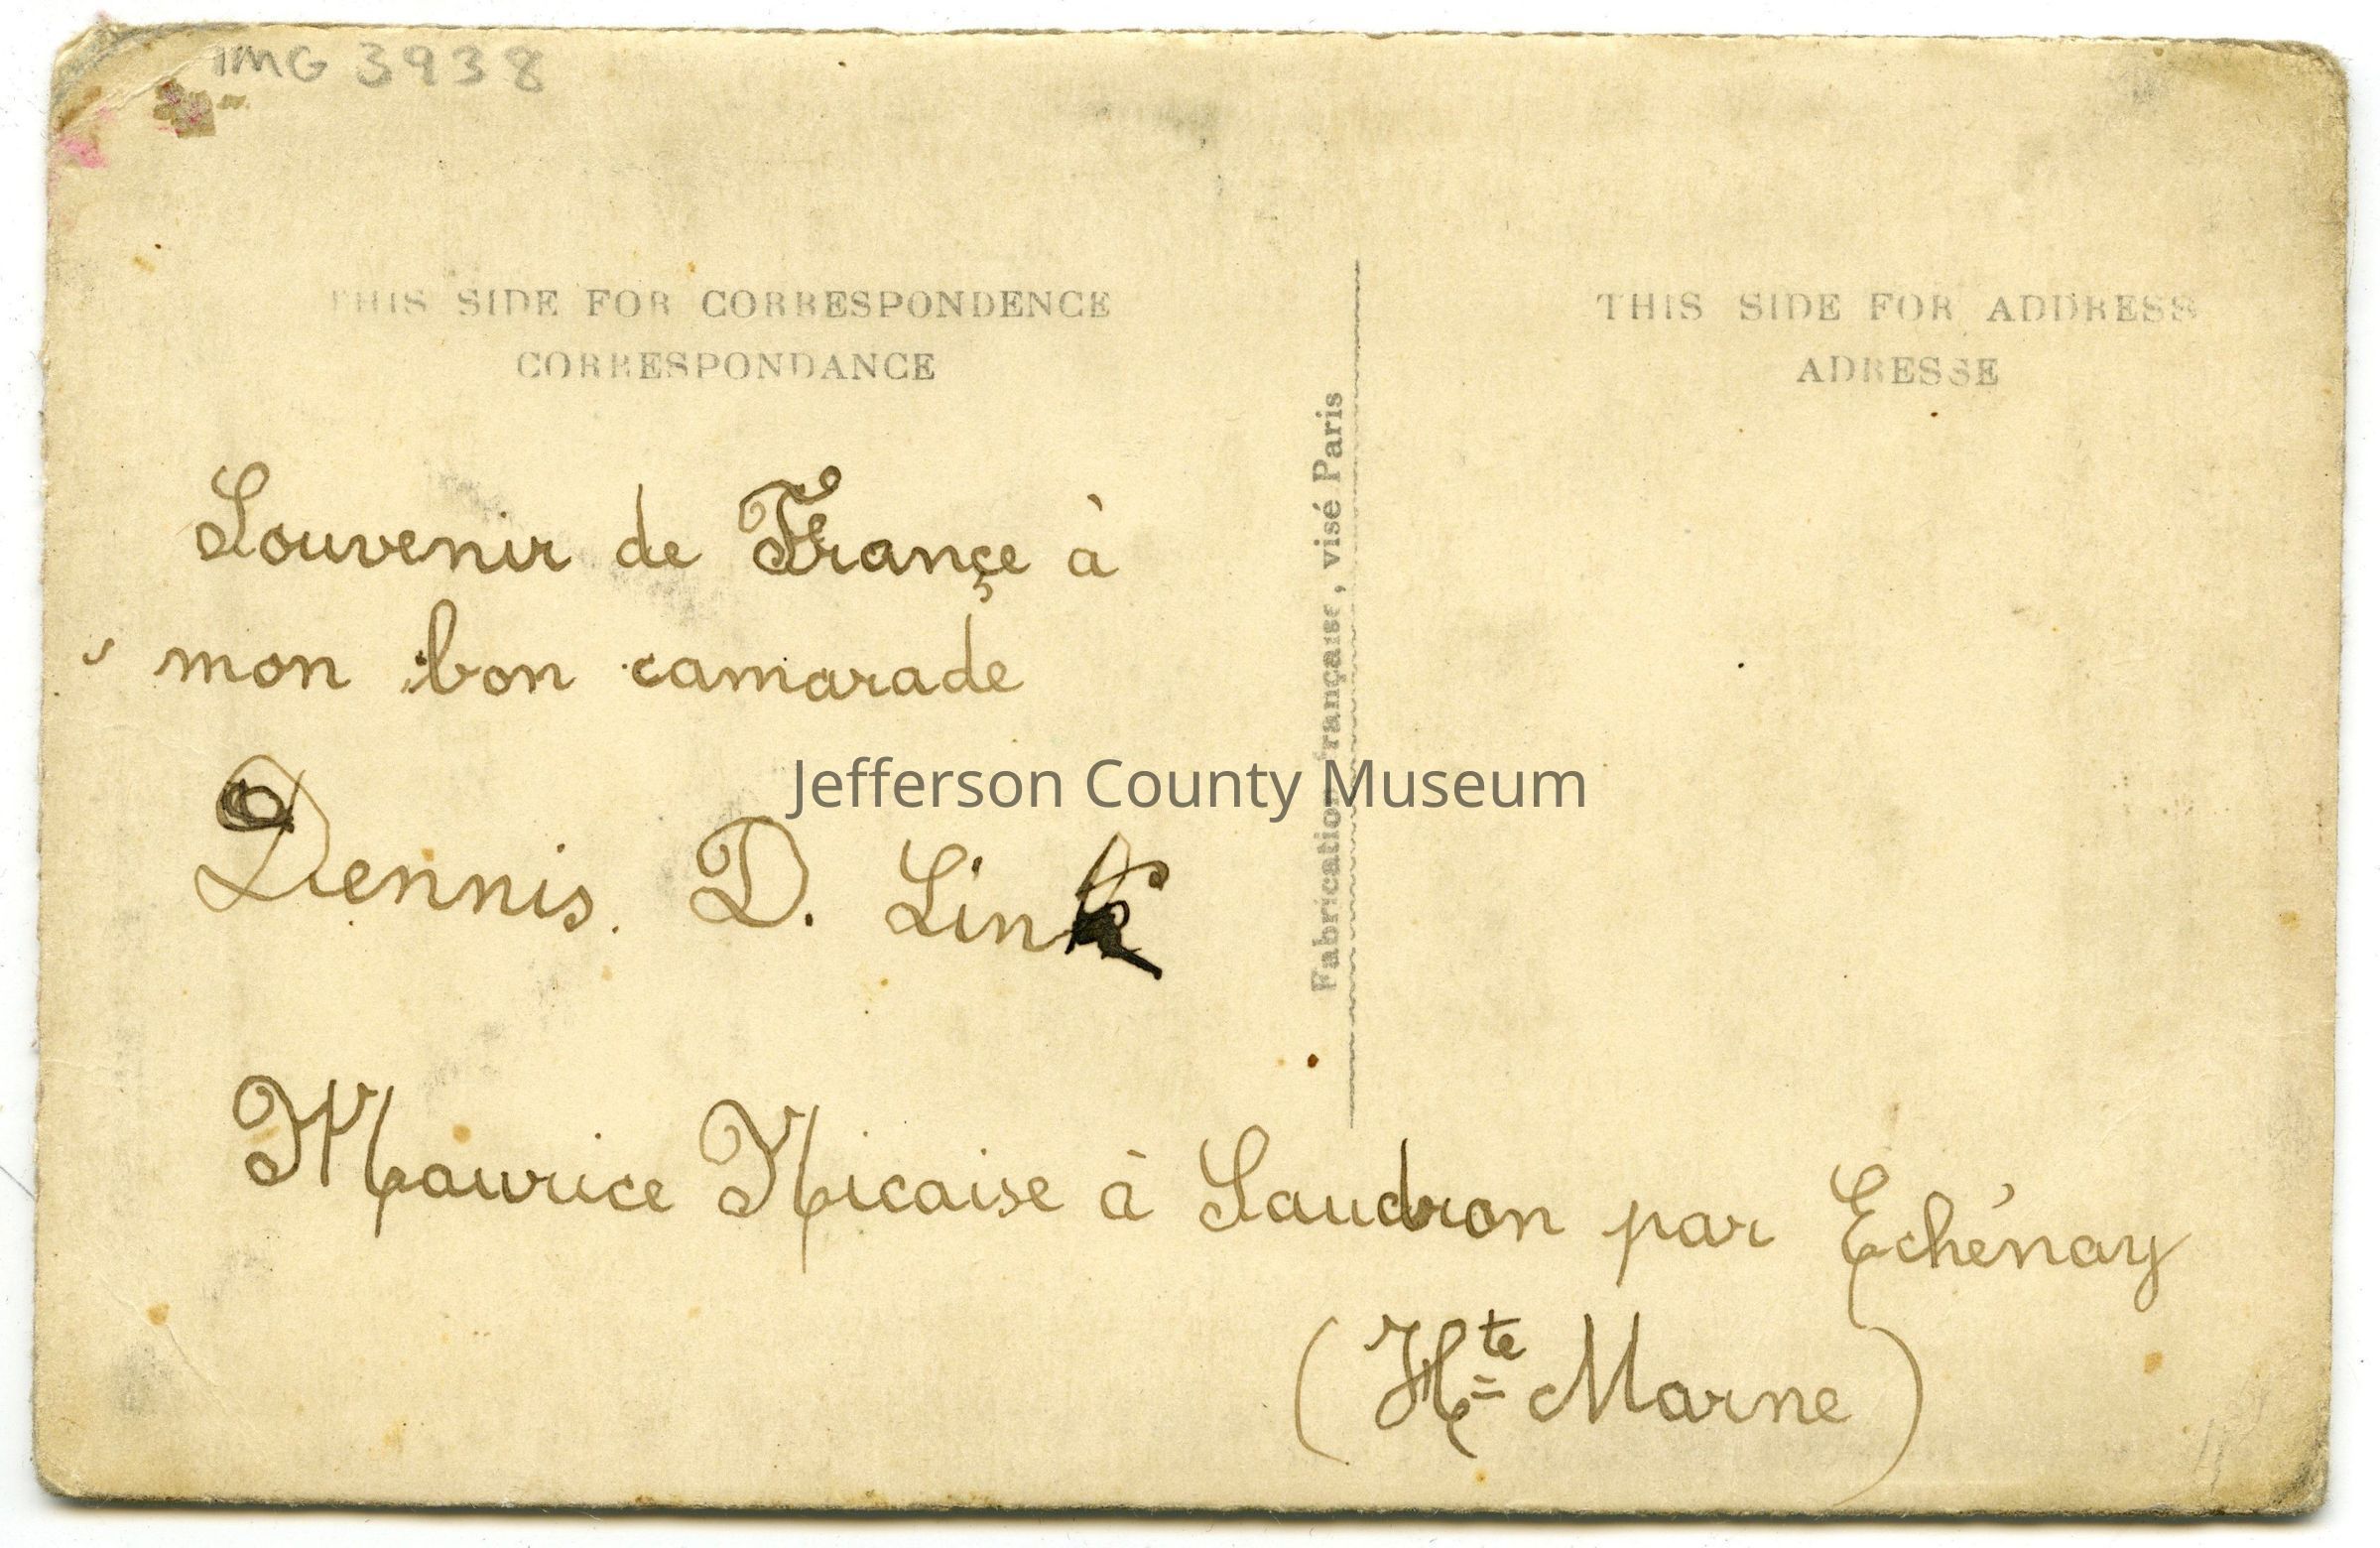 IMG 3938
THIS SIDE FOR CORRESPONDENCE
CORRESPONDANCE
Souvenir de Françe à
mon bon camarade
Dennis. D. Link
Maurice Nicaise à Saudron par Echénay
(Hte Marne)
Fabrication française, visé Paris
THIS SIDE FOR ADDRESS
ADRESSE
Jefferson County Museum